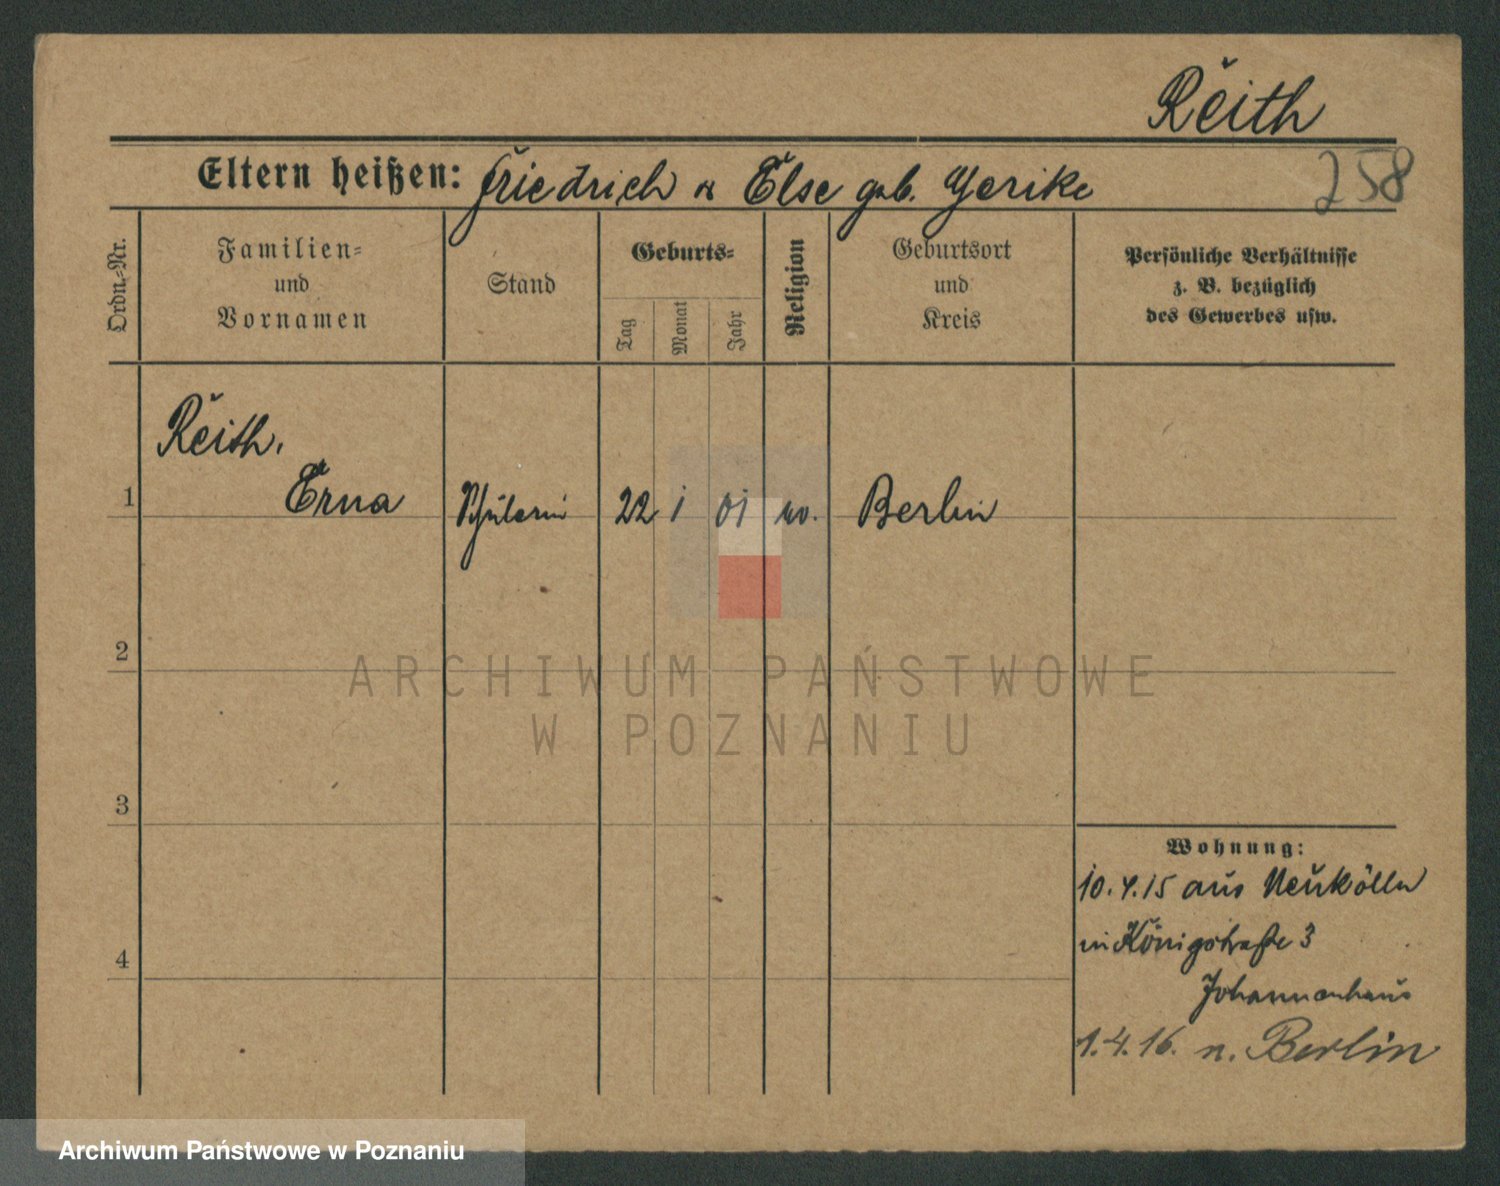 Reith
258
Eltern heißen: Friedrich u Else geb. Gerike
Ordn.-Nr.
Familien-
und
Vornamen
Stand
Geburts-
Tag
Monat
Jahr
Religion
Geburtsort
und
Kreis
Persönliche Verhältnisse
z. B. bezüglich
des Gewerbes usw.
1
Reith,
Erna
Schülerin
22
1
01
ev.
Berlin
2
3
4
Wohnung:
10.4.15 aus Neukölln
in Königstraße 3
Johannenhaus
1.4.16. n. Berlin
ARCHIWUM PAŃSTWOWE
W POZNANIU
Archiwum Państwowe w Poznaniu